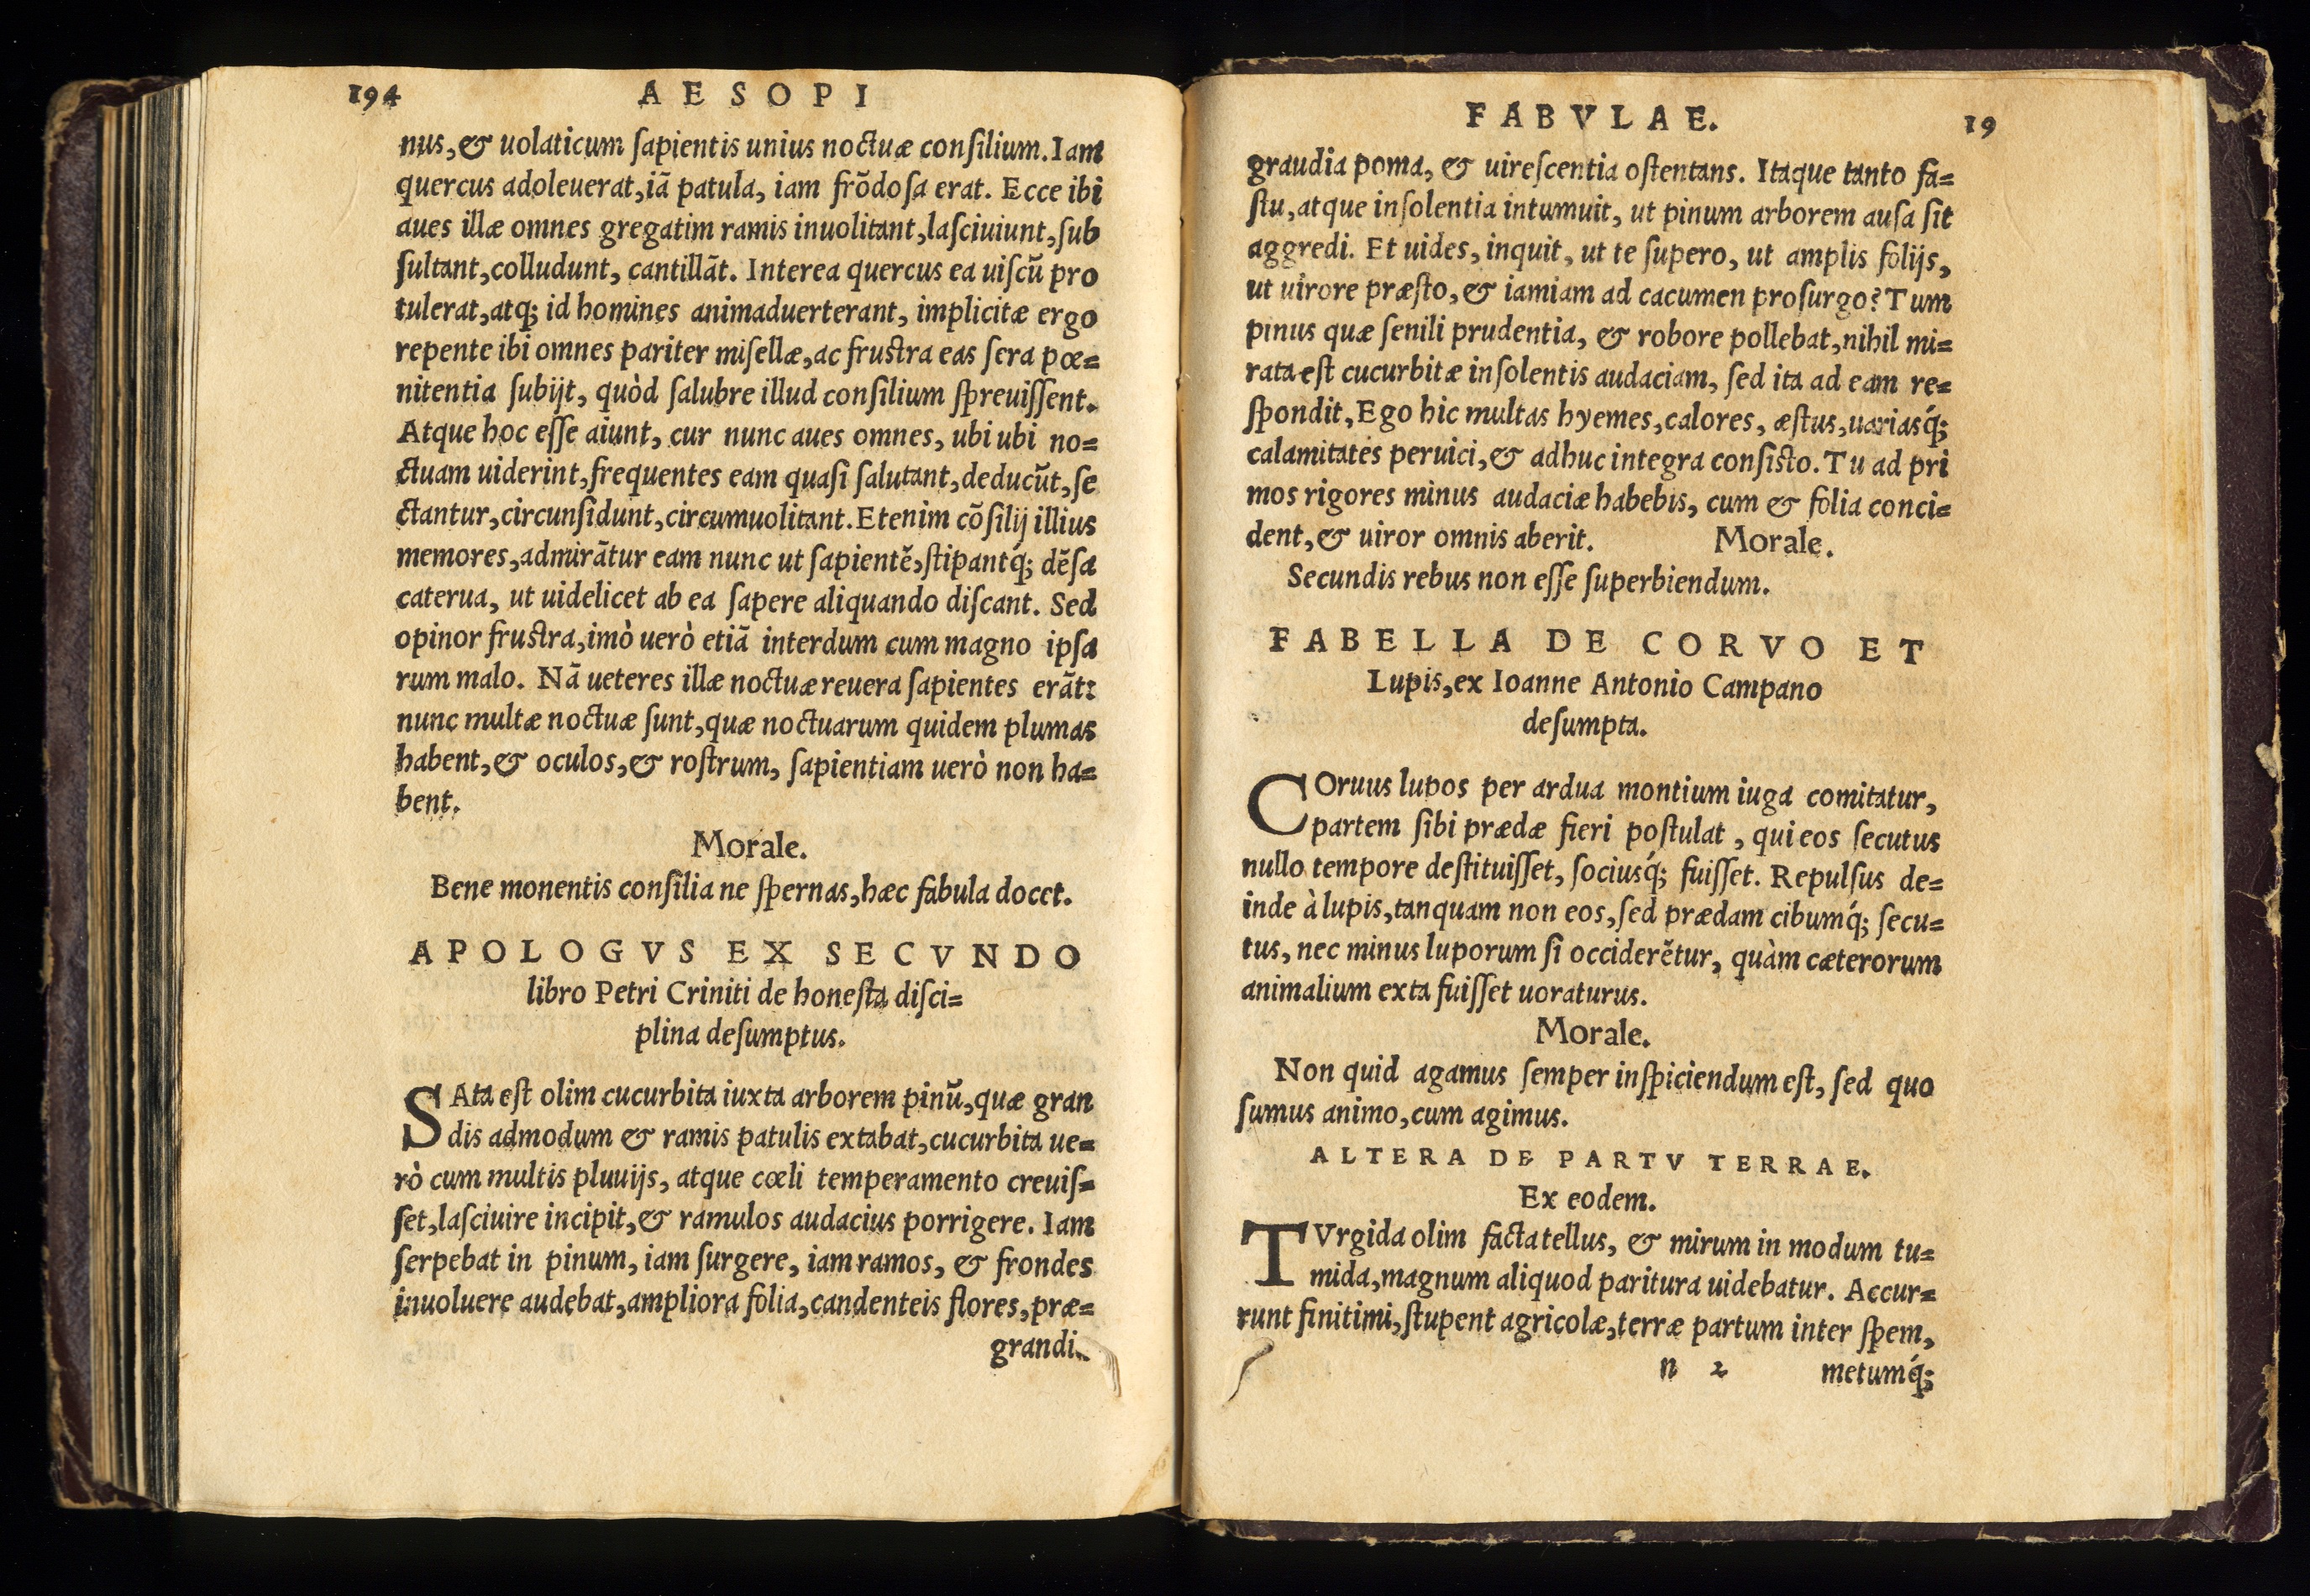 194 AESOPI
nus, & uolaticum ſapientis unius noctuæ conſilium. Iam
quercus adoleuerat, iā patula, iam frōdoſa erat. Ecce ibi
aues illæ omnes gregatim ramis inuolitant, laſciuiunt, ſub
ſultant, colludunt, cantillāt. Interea quercus ea uiſcū pro
tulerat, atq; id homines animaduerterant, implicitæ ergo
repente ibi omnes pariter miſellæ, ac fruſtra eas ſera pœ=
nitentia ſubijt, quòd ſalubre illud conſilium ſpreuiſſent.
Atque hoc eſſe aiunt, cur nunc aues omnes, ubi ubi no=
ctuam uiderint, frequentes eam quaſi ſalutant, deducūt, ſe
ctantur, circunſidunt, circumuolitant. Etenim cōſilij illius
memores, admirātur eam nunc ut ſapientē, ſtipantq́; dēſa
caterua, ut uidelicet ab ea ſapere aliquando diſcant. Sed
opinor fruſtra, imò uerò etiā interdum cum magno ipſa
rum malo. Nā ueteres illæ noctuæ reuera ſapientes erāt:
nunc multæ noctuæ ſunt, quæ noctuarum quidem plumas
habent, & oculos, & roſtrum, ſapientiam uerò non ha=
bent.
Morale.
Bene monentis conſilia ne ſpernas, hæc fabula docet.
APOLOGVS EX SECVNDO
libro Petri Criniti de honeſta diſci=
plina deſumptus.
SAta eſt olim cucurbita iuxta arborem pinū, quæ gran
dis admodum & ramis patulis extabat, cucurbita ue=
rò cum multis pluuijs, atque cœli temperamento creuiſ=
ſet, laſciuire incipit, & ramulos audacius porrigere. Iam
ſerpebat in pinum, iam ſurgere, iam ramos, & frondes
inuoluere audebat, ampliora folia, candenteis flores, præ=
grandi.
FABVLAE. 19
graudia poma, & uireſcentia oſtentans. Itaque tanto fa=
ſtu, atque inſolentia intumuit, ut pinum arborem auſa ſit
aggredi. Et uides, inquit, ut te ſupero, ut amplis folijs,
ut uirore præſto, & iamiam ad cacumen proſurgo? Tum
pinus quæ ſenili prudentia, & robore pollebat, nihil mi=
rata eſt cucurbitæ inſolentis audaciam, ſed ita ad eam re=
ſpondit, Ego hic multas hyemes, calores, æſtus, uariasq́;
calamitates peruici, & adhuc integra conſiſto. Tu ad pri
mos rigores minus audaciæ habebis, cum & folia conci=
dent, & uiror omnis aberit. Morale.
Secundis rebus non eſſe ſuperbiendum.
FABELLA DE CORVO ET
Lupis, ex Ioanne Antonio Campano
deſumpta.
COruus lupos per ardua montium iuga comitatur,
partem ſibi prædæ fieri poſtulat, qui eos ſecutus
nullo tempore deſtituiſſet, ſociusq́; fuiſſet. Repulſus de=
inde à lupis, tanquam non eos, ſed prædam cibumq́; ſecu=
tus, nec minus luporum ſi occiderētur, quàm cæterorum
animalium exta fuiſſet uoraturus.
Morale.
Non quid agamus ſemper inſpiciendum eſt, ſed quo
ſumus animo, cum agimus.
ALTERA DE PARTV TERRAE.
Ex eodem.
TVrgida olim facta tellus, & mirum in modum tu=
mida, magnum aliquod paritura uidebatur. Accur=
runt finitimi, ſtupent agricolæ, terræ partum inter ſpem,
n 2 metumq́;